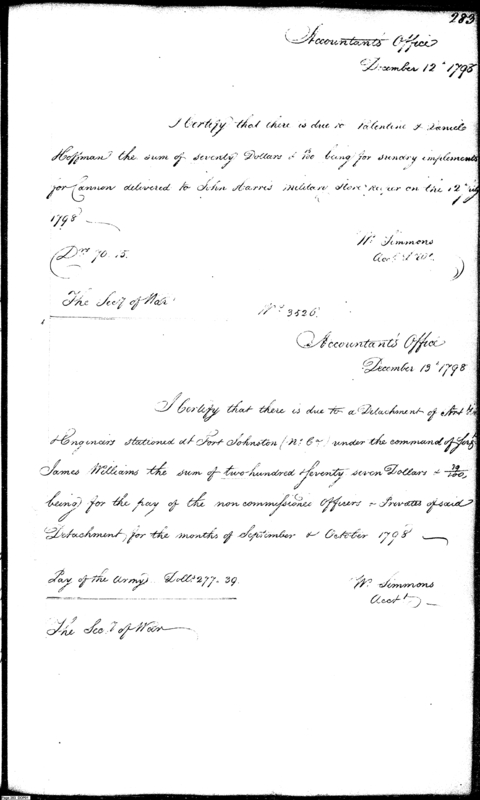 283
Accountants Office
December 12th 1798
I Certify that there is due to Valentine & Daniels
Hoffman the sum of seventy Dollars & 15/100 being for sundry implements
for Cannon delivered to John Harris military Store keeper on the 12th July
1798
Drs 70.15.
Wm Simmons
The Secy of War
No 3526.
Accountant's Office
December 13th 1798
I Certify that there is due to a Detachment of
& Engineers stationed at Fort Johnston (No Ca) under the command of
James Williams the sum of two hundred & seventy seven Dollars & 39/100,
being for the pay of the non commissioned Officers & Privates of said
Detachment, for the months of September & October 1798
Pay of the Army Dolls 277-39
Wm Simmons
Acctt
The Secy of War